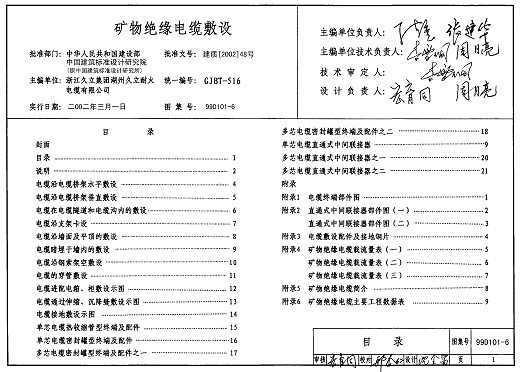 矿物绝缘电缆敷设
批准部门: 中华人民共和国建设部 批准文号: 建质[2002]48号
中国建筑标准设计研究院
(原中国建筑标准设计研究所)
主编单位: 浙江久立集团湖州久立耐火 统一编号: GJBT-516
电缆有限公司
实行日期: 二00二年三月一日 图集号: 99D101-6
主编单位负责人:
主编单位技术负责人:
技术审定人:
设计负责人:
目录
封面
目录 1
说明 2
电缆沿电缆桥架水平敷设 4
电缆沿电缆桥架垂直敷设 5
电缆在电缆隧道和电缆沟内的敷设 6
电缆沿支架卡设 7
电缆沿墙面及平顶的敷设 8
电缆暗埋于墙内的敷设 9
电缆沿钢索架空敷设 10
电缆的穿管敷设 11
电缆进配电箱、柜敷设示图 12
电缆通过伸缩、沉降缝敷设示图 13
电缆接地敷设示图 14
单芯电缆热收缩管型终端及配件 15
单芯电缆密封罐型终端及配件 16
多芯电缆密封罐型终端及配件之一 17
多芯电缆密封罐型终端及配件之二 18
单芯电缆直通式中间联接器 19
多芯电缆直通式中间联接器之一 20
多芯电缆直通式中间联接器之二 21
附录
附录1 电缆终端部件图 1
附录2 直通式中间联接器部件图(一) 2
直通式中间联接器部件图(二) 3
附录3 电缆敷设配件及接地铜片 4
附录4 矿物绝缘电缆载流量表(一) 5
矿物绝缘电缆载流量表(二) 6
矿物绝缘电缆载流量表(三) 7
附录5 矿物绝缘电缆简介 8
附录6 矿物绝缘电缆主要工程数据表 9
目录 图集号 99D101-6
审核 校对 设计 页 1